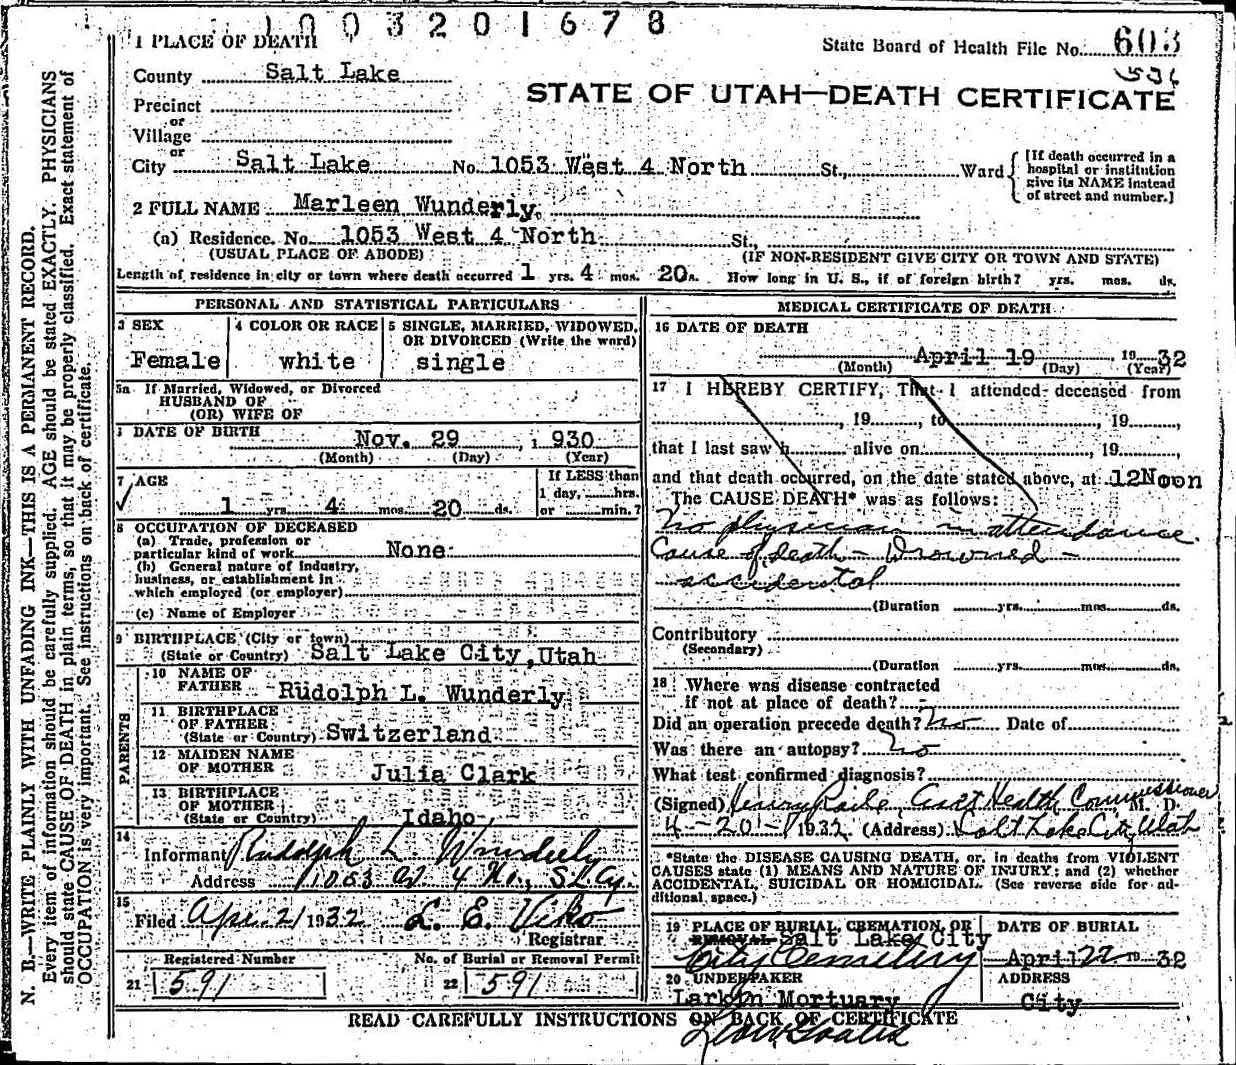 1003201678
1 PLACE OF DEATH
State Board of Health File No. 603
County Salt Lake
536
STATE OF UTAH—DEATH CERTIFICATE
Precinct
or
Village
or
City Salt Lake No. 1053 West 4 North St., Ward
[If death occurred in a
hospital or institution
give its NAME instead
of street and number.]
2 FULL NAME Marleen Wunderly.
(a) Residence. No. 1053 West 4 North St.,
(USUAL PLACE OF ABODE) (IF NON-RESIDENT GIVE CITY OR TOWN AND STATE)
Length of residence in city or town where death occurred 1 yrs. 4 mos. 20 s. How long in U. S., if of foreign birth? yrs. mos. ds.
PERSONAL AND STATISTICAL PARTICULARS
3 SEX
Female
4 COLOR OR RACE
white
5 SINGLE, MARRIED, WIDOWED,
OR DIVORCED (Write the word)
single
5a If Married, Widowed, or Divorced
HUSBAND OF
(OR) WIFE OF
DATE OF BIRTH
Nov. 29, 1930
(Month) (Day) (Year)
7 AGE
1 yrs. 4 mos. 20 ds.
If LESS than
1 day, hrs.
or min.?
8 OCCUPATION OF DECEASED
(a) Trade, profession or
particular kind of work None
(b) General nature of industry,
business, or establishment in
which employed (or employer)
(c) Name of Employer
9 BIRTHPLACE (City or town)
(State or Country) Salt Lake City, Utah
PARENTS
10 NAME OF
FATHER Rudolph L. Wunderly
11 BIRTHPLACE
OF FATHER
(State or Country) Switzerland
12 MAIDEN NAME
OF MOTHER Julia Clark
13 BIRTHPLACE
OF MOTHER
(State or Country) Idaho
14
Informant Rudolph L. Wunderly
Address 1053 W. 4 No., S L Cy.
15
Filed Apr. 21 1932 L. E. Viko
Registrar
Registered Number
21 591
No. of Burial or Removal Permit
22 591
MEDICAL CERTIFICATE OF DEATH
16 DATE OF DEATH
April 19, 1932
(Month) (Day) (Year)
17 I HEREBY CERTIFY, That I attended deceased from
, 19 , to , 19 ,
that I last saw h alive on , 19 ,
and that death occurred, on the date stated above, at 12Noon
The CAUSE DEATH* was as follows:
No physician in attendance.
Cause of death - Drowned -
accidental
(Duration yrs. mos. ds.
Contributory
(Secondary)
(Duration yrs. mos. ds.
18 Where was disease contracted
if not at place of death? -
Did an operation precede death? No Date of
Was there an autopsy? No
What test confirmed diagnosis?
(Signed) Health Commissioner M. D.
4-20-1932 (Address) Salt Lake City, Utah
*State the DISEASE CAUSING DEATH, or, in deaths from VIOLENT
CAUSES state (1) MEANS AND NATURE OF INJURY; and (2) whether
ACCIDENTAL, SUICIDAL OR HOMICIDAL. (See reverse side for ad-
ditional space.)
19 PLACE OF BURIAL, CREMATION, OR
REMOVAL Salt Lake City
City Cemetery
DATE OF BURIAL
April 22 19 32
20 UNDERTAKER
Larkin Mortuary
ADDRESS
City
READ CAREFULLY INSTRUCTIONS ON BACK OF CERTIFICATE
N. B.—WRITE PLAINLY WITH UNFADING INK—THIS IS A PERMANENT RECORD.
Every item of information should be carefully supplied. AGE should be stated EXACTLY. PHYSICIANS
should state CAUSE OF DEATH in plain terms, so that it may be properly classified. Exact statement of
OCCUPATION is very important. See instructions on back of certificate.